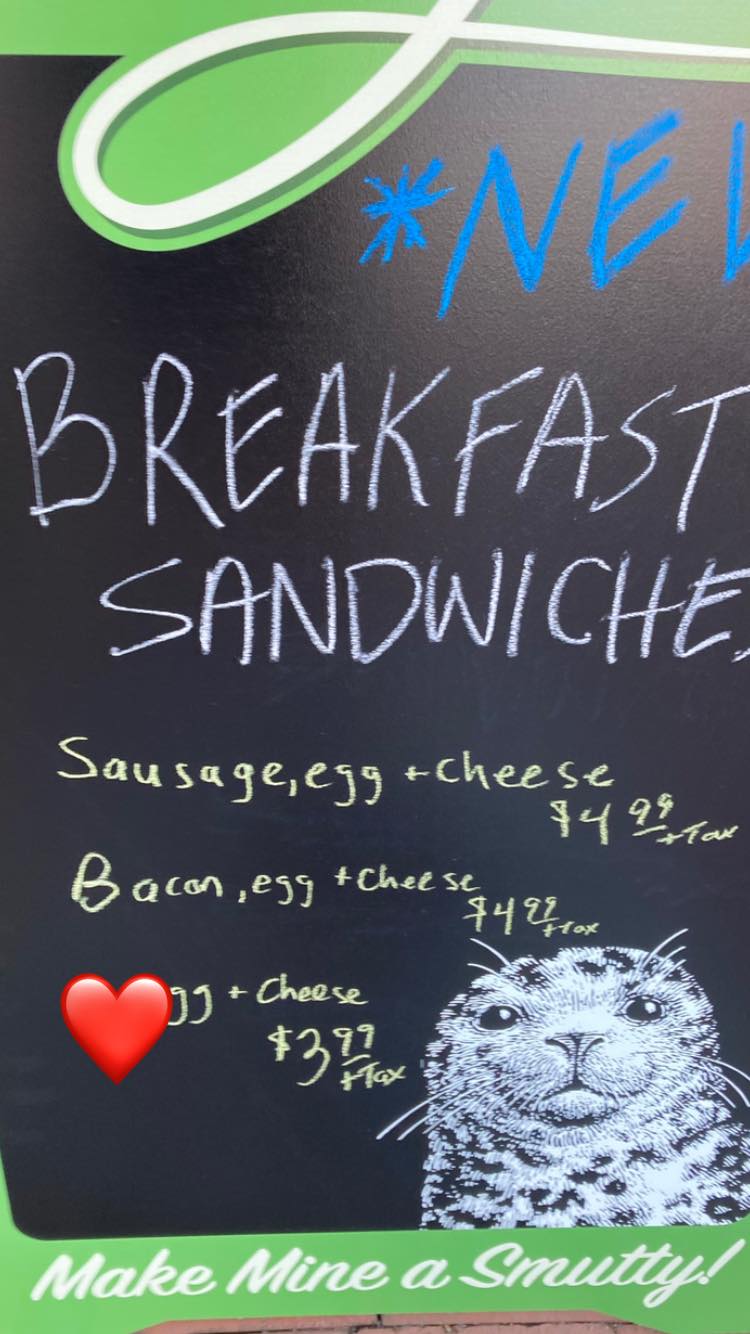 *NEW
BREAKFAST
SANDWICHES
Sausage, egg + cheese
$4.99 + Tax
Bacon, egg + cheese
$4.99 + Tax
gg + Cheese
$3.99
+ Tax
Make Mine a Smutty!